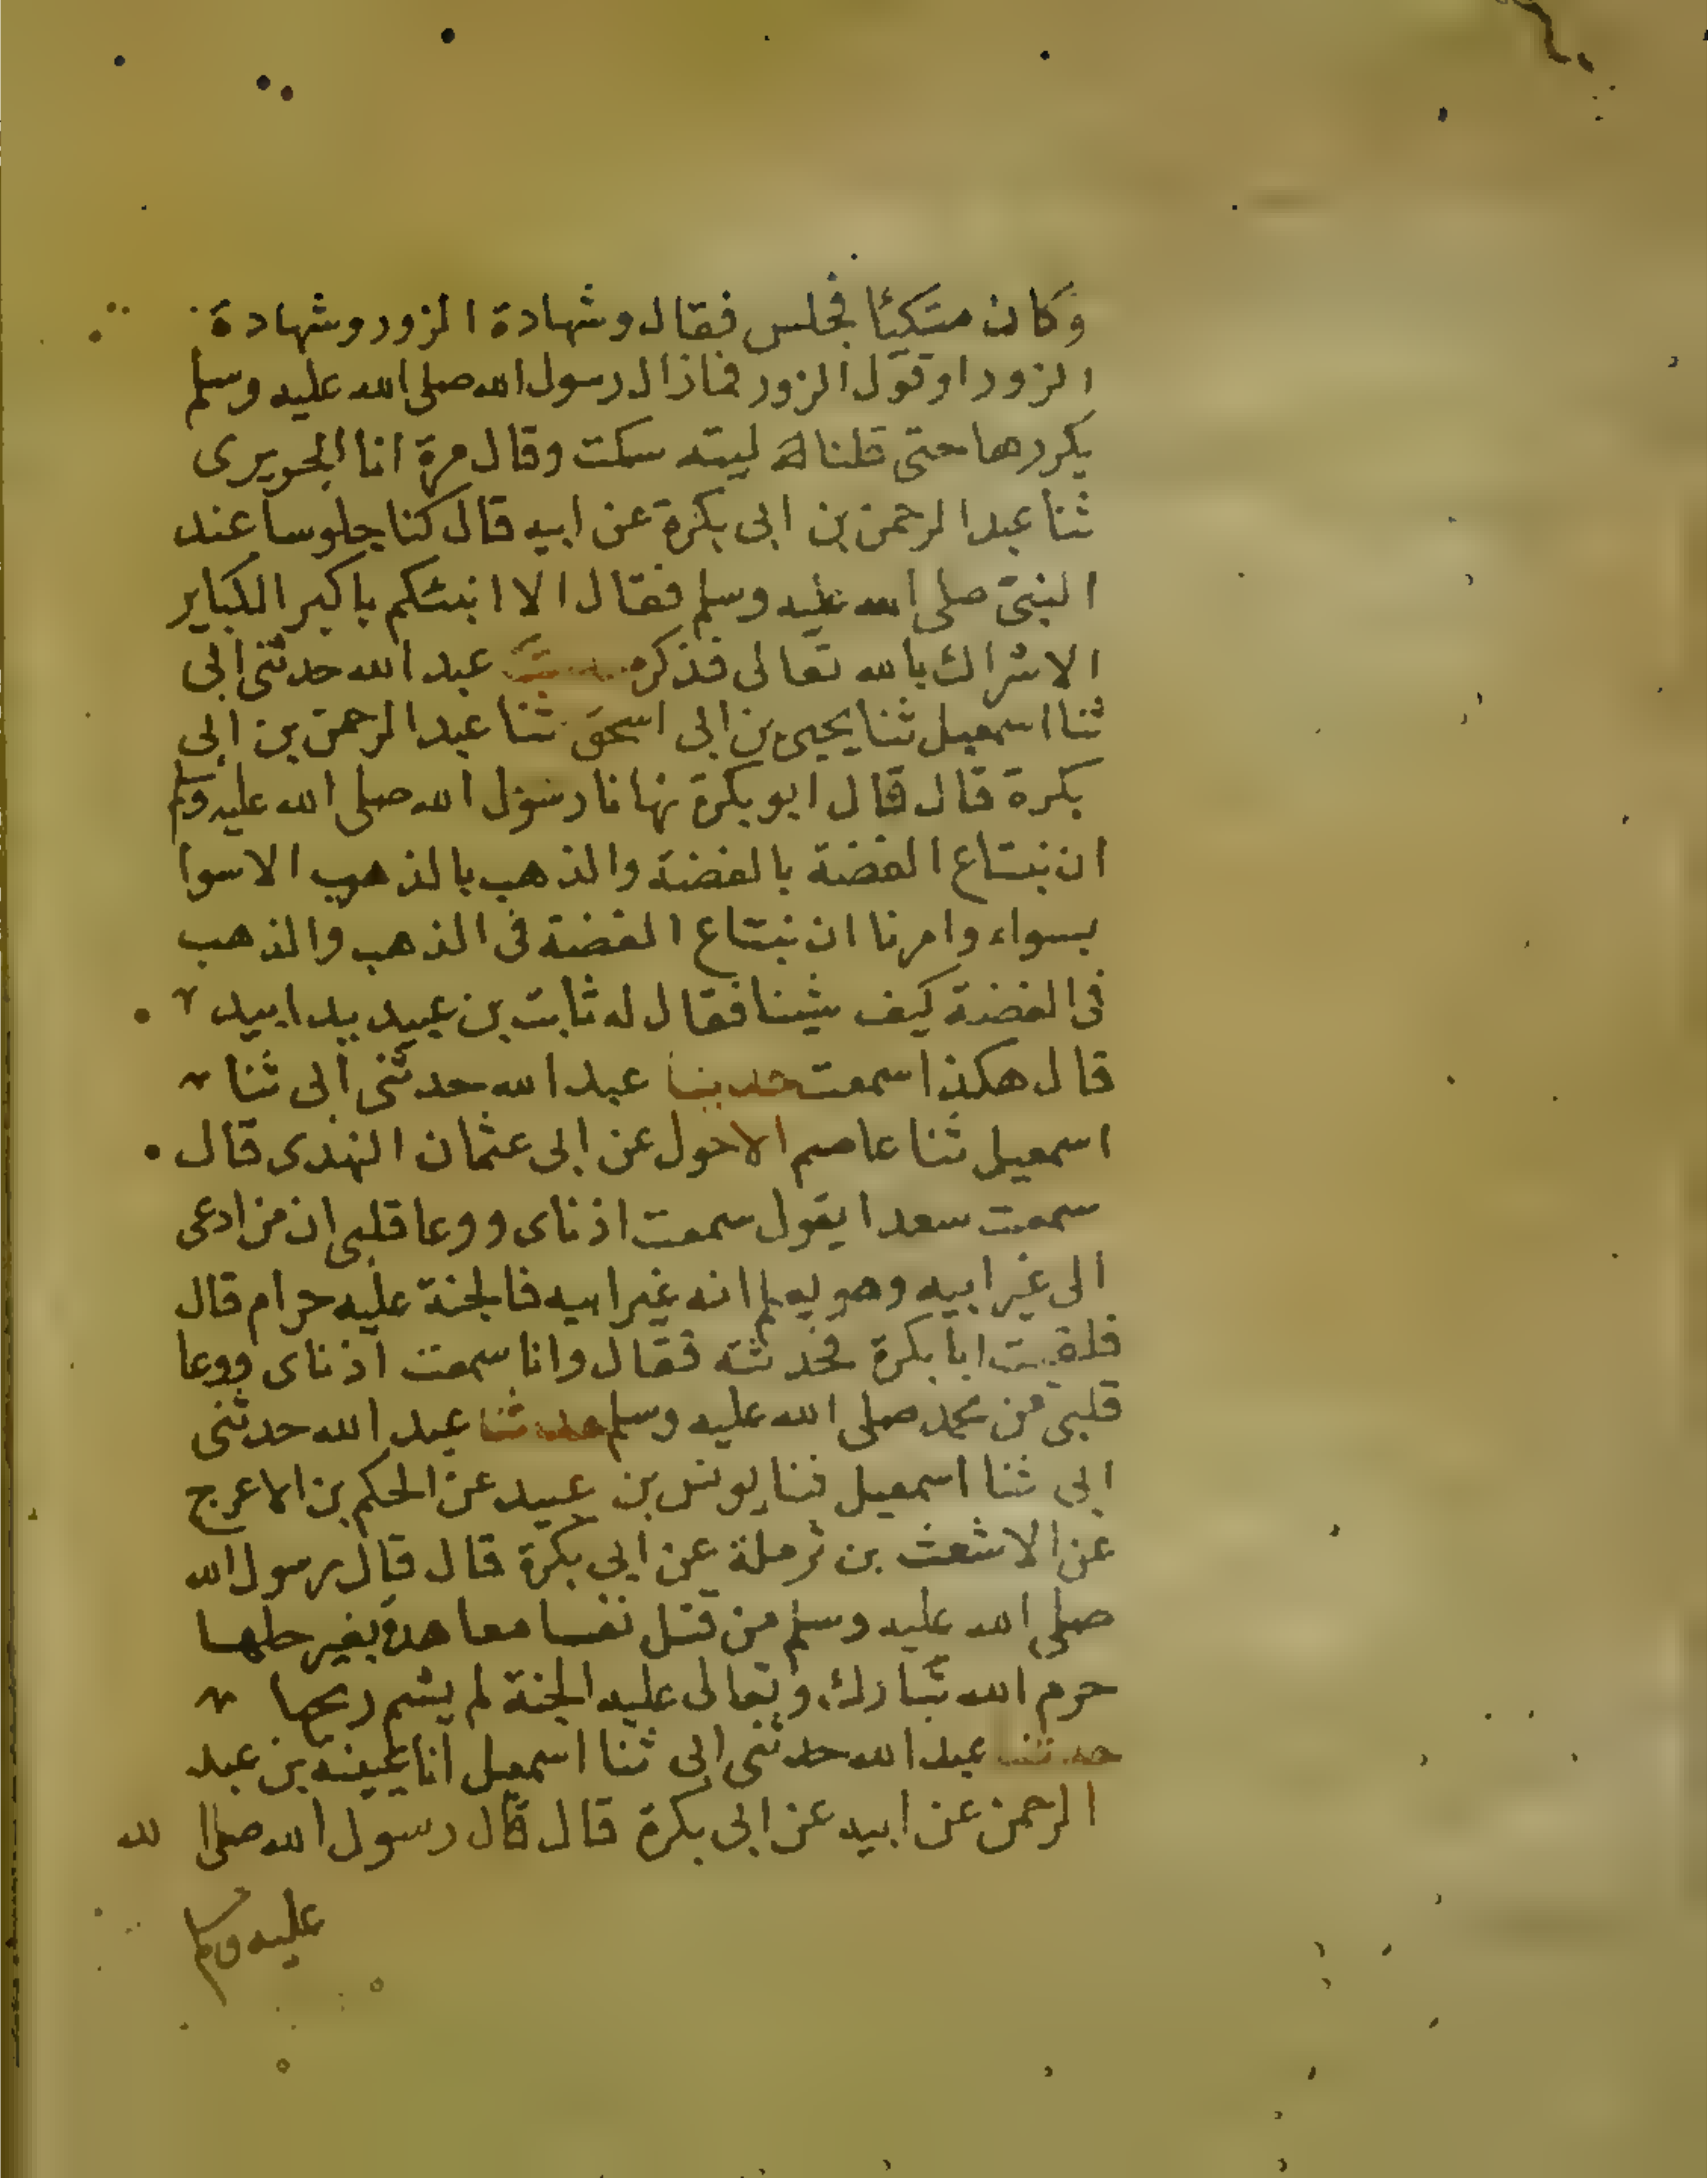 وكان متكئا فجلس فقال وشهادة الزور وشهادة
الزور او قول الزور فماذال رسول الله صلى الله عليه وسلم
يكررها حتى قلنا له ليته سكت وقال مرة انا الجريرى
ثنا عبد الرحمن بن ابى بكرة عن ابيه قال كنا جلوسا عند
النبى صلى الله عليه وسلم فقال الا انبئكم باكبر الكباير
الاشراك بالله تعالى فذكره حدثنا عبد الله حدثنى ابى
ثنا اسمعيل ثنا يحيى بن ابى اسحق ثنا عبد الرحمن بن ابى
بكرة قال قال ابو بكرة نهانا رسول الله صلى الله عليه وسلم
ان نبتاع الفضة بالفضة والذهب بالذهب الا سوا
بسواء وامرنا ان نبتاع الفضة فى الذهب والذهب
فى الفضة كيف شينا فقال له ثابت بن عبيد يدا بيد
قال هكذا سمعت حدثنا عبد الله حدثنى ابى ثنا
اسمعيل ثنا عاصم الاحول عن ابى عثمان النهدى قال
سمعت سعدا يقول سمعت اذناى ووعا قلبى ان من ادعى
الى غير ابيه وهو يعلم انه غير ابيه فالجنة عليه حرام قال
فلقيت ابا بكرة فحدثته فقال وانا سمعت اذناى ووعا
قلبى من محمد صلى الله عليه وسلم حدثنا عبد الله حدثنى
ابى ثنا اسمعيل ثنا يونس بن عبيد عن الحكم بن الاعرج
عن الاشعث بن ثرملة عن ابى بكرة قال قال رسول الله
صلى الله عليه وسلم من قتل نفسا معاهدة بغير حلها
حرم الله تبارك وتعالى عليه الجنة لم يشم ريحها
حدثنا عبد الله حدثنى ابى ثنا اسمعيل انا عيينة بن عبد
الرحمن عن ابيه عن ابى بكرة قال قال رسول الله صلى الله
عليه وسلم